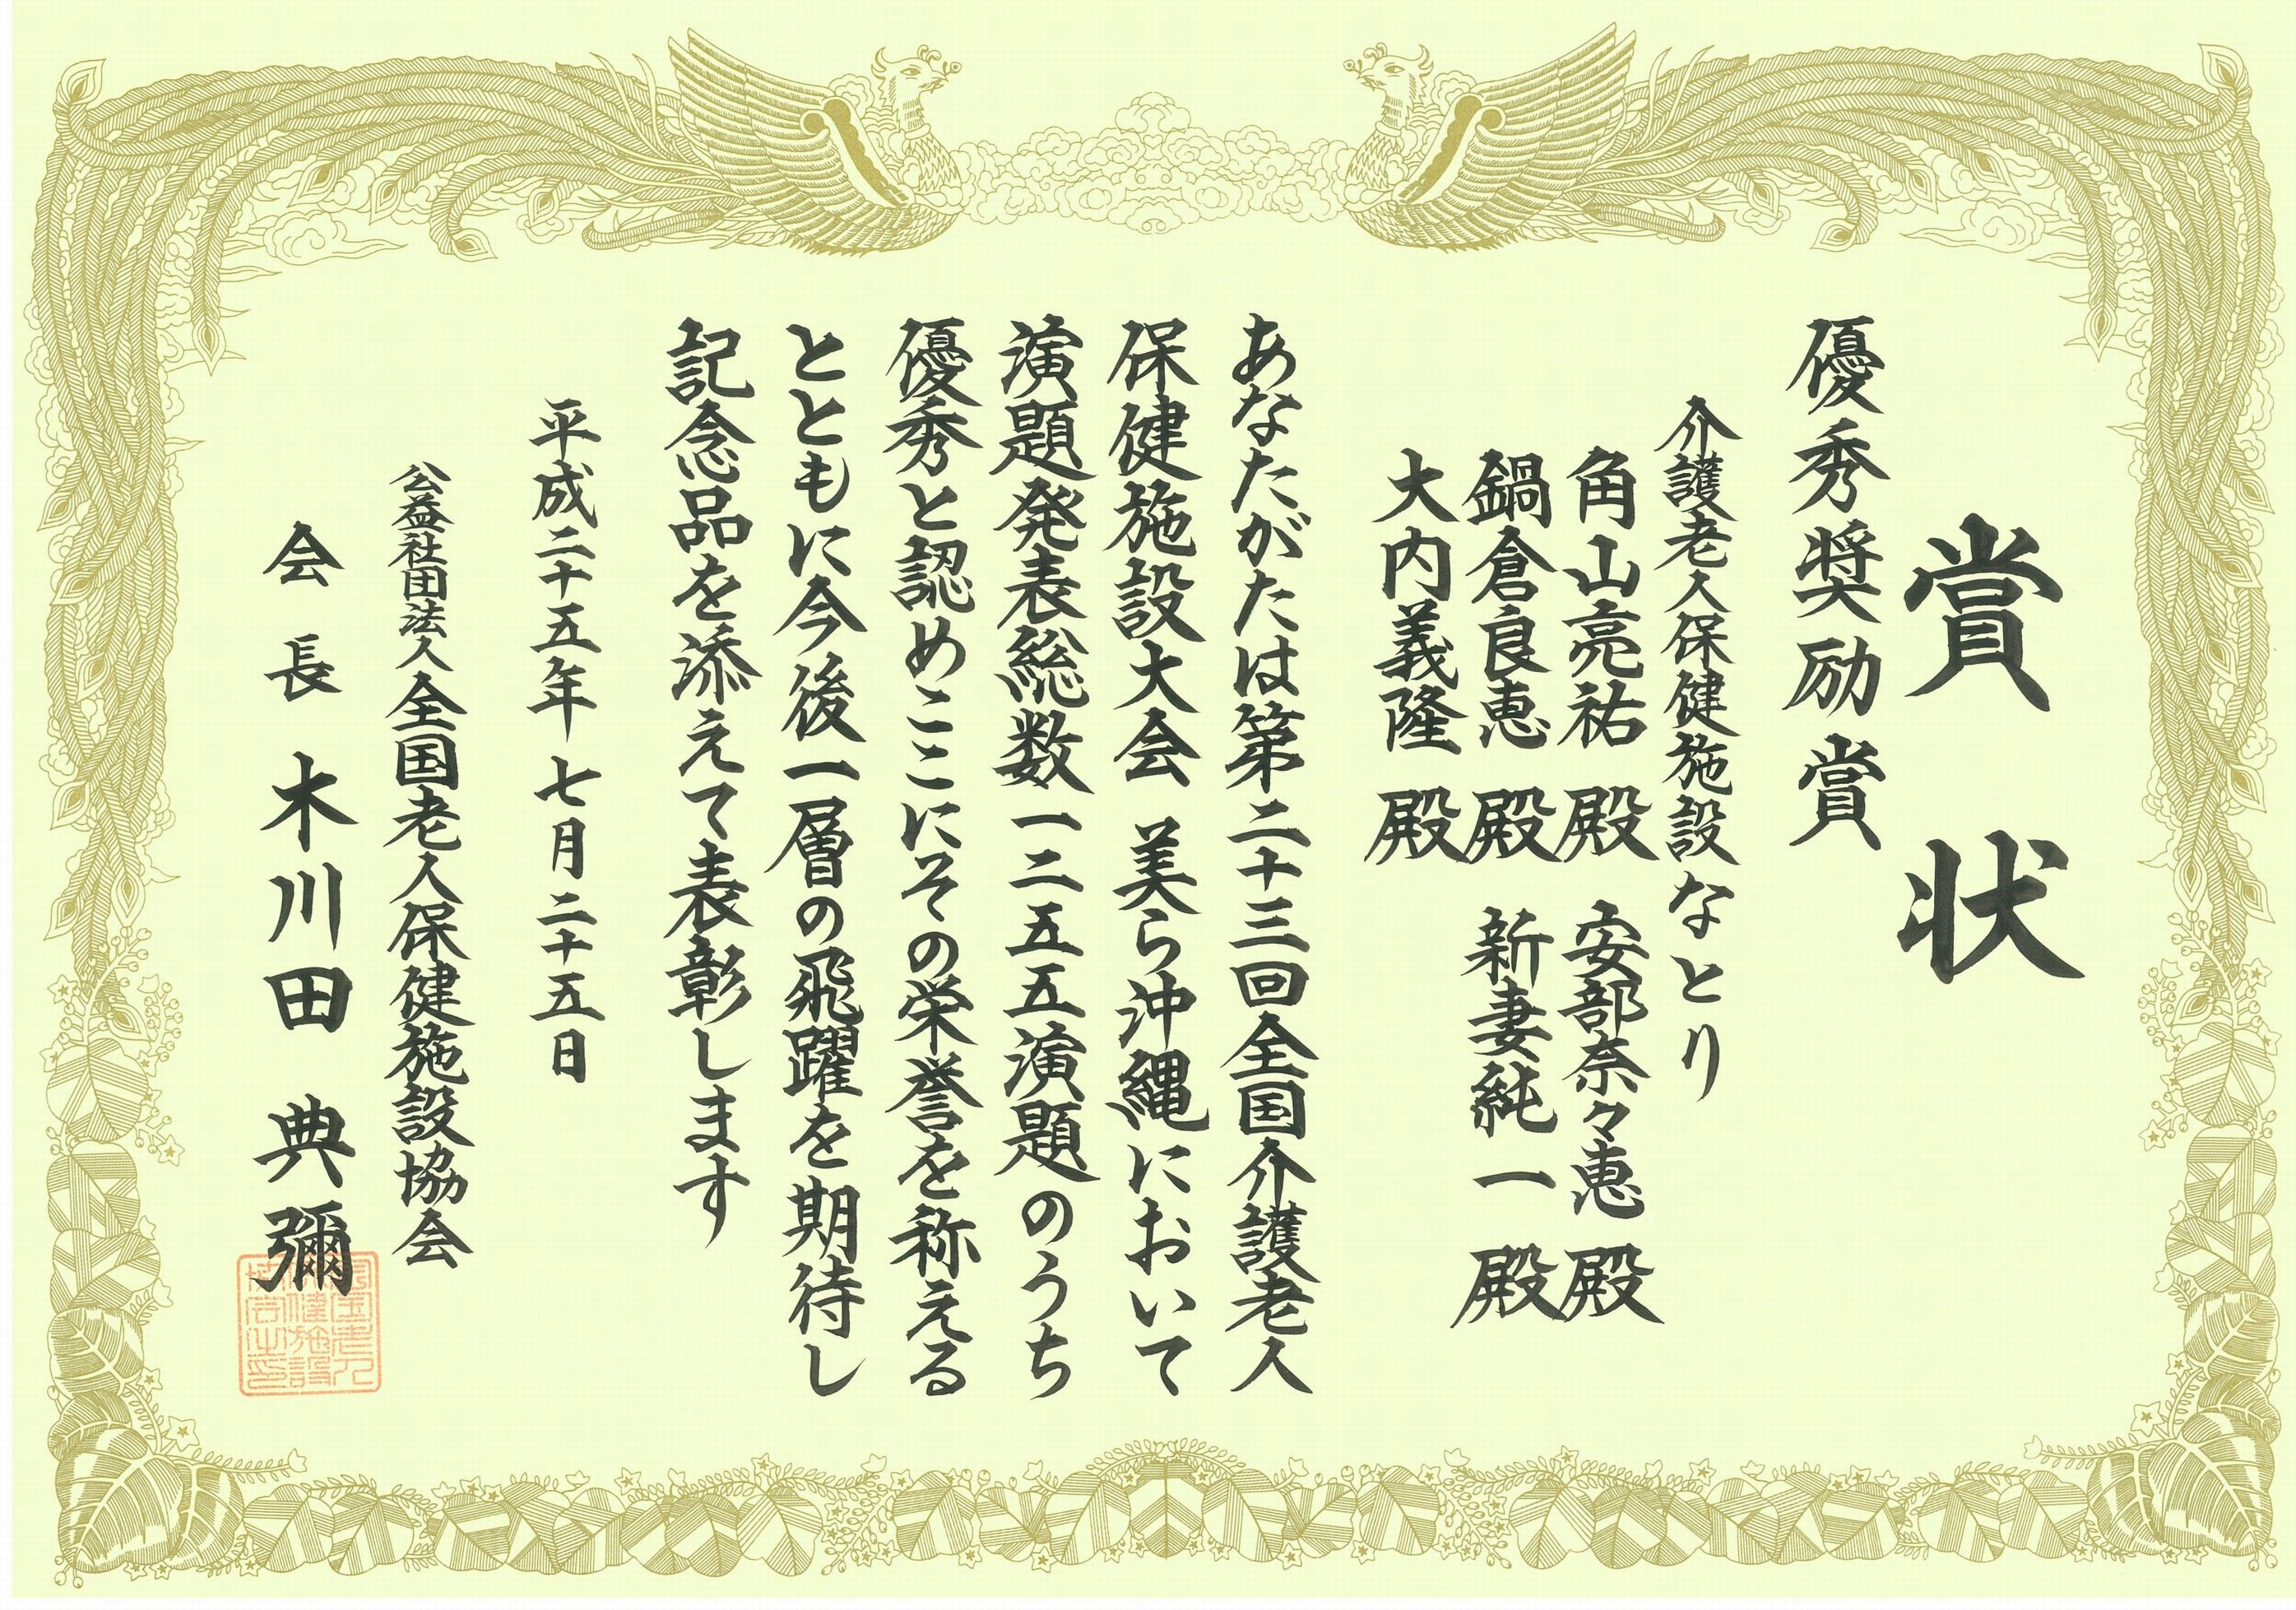 賞状
優秀奨励賞
介護老人保健施設なとり
角山亮祐 殿 安部奈々恵 殿
鍋倉良恵 殿 新妻純一 殿
大内義隆 殿
あなたがたは第二十三回全国介護老人
保健施設大会 美ら沖縄において
演題発表総数一二五五演題のうち
優秀と認めここにその栄誉を称える
とともに今後一層の飛躍を期待し
記念品を添えて表彰します
平成二十五年七月二十五日
公益社団法人全国老人保健施設協会
会長 木川田典彌